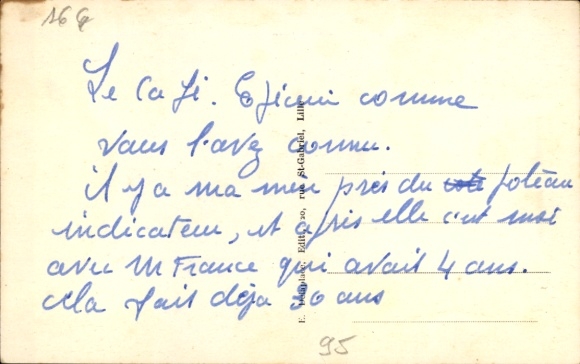 16 G
Le Café. Epicerie comme
vous l'avez connu.
il y a ma mère près du poteau
indicateur, et après elle c'est moi
avec M France qui avait 4 ans.
cela fait déja 36 ans
E. Delaplace, Edit., 20, rue St-Gabriel, Lille
95